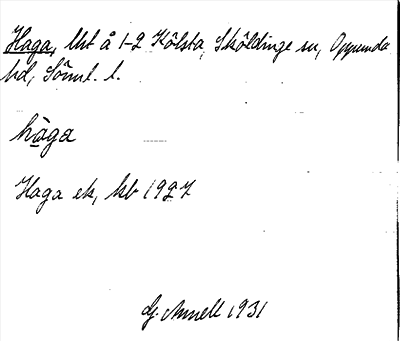 Haga, lht å 1-2 Kölsta, Sköldinge sn, Oppunda
hd, Söml. l.
håga
Haga ek, kb 1927
G. Annell 1931